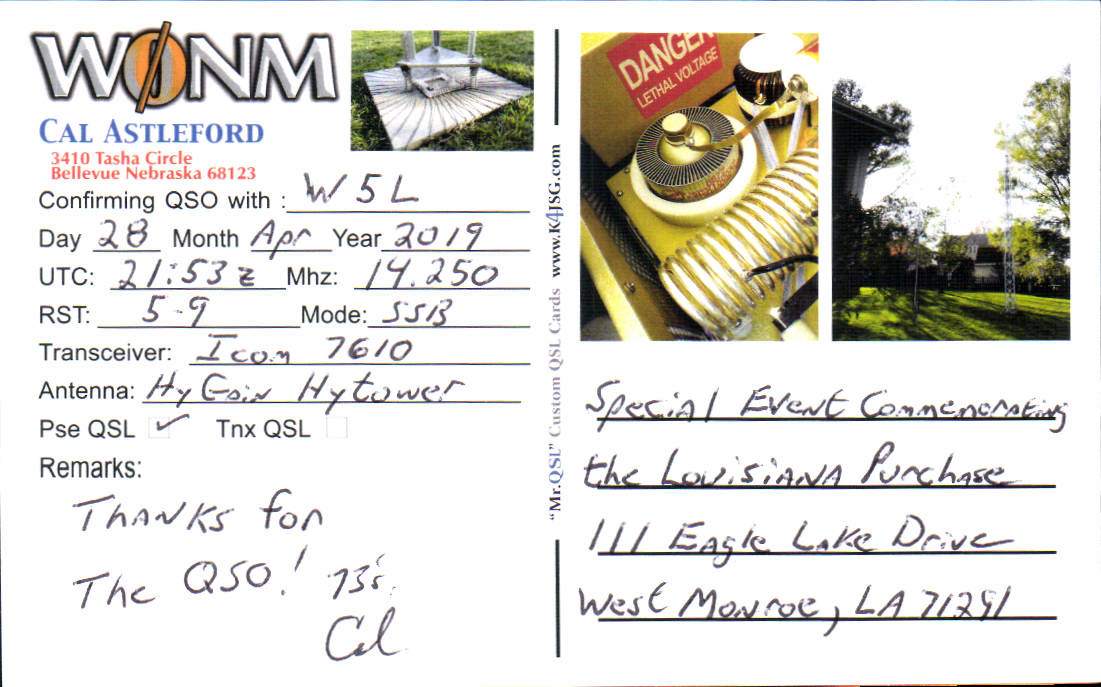 WØNM
CAL ASTLEFORD
3410 Tasha Circle
Bellevue Nebraska 68123
Confirming QSO with : W5L
Day 28 Month Apr Year 2019
UTC: 21:53 z Mhz: 14.250
RST: 5-9 Mode: SSB
Transceiver: Icom 7610
Antenna: HyGain Hytower
Pse QSL ✓ Tnx QSL
Remarks:
Thanks for
The QSO! 73's.
Cal
"Mr.QSL" Custom QSL Cards www.K4JSG.com
DANGER
LETHAL VOLTAGE
Special Event Commemorating
the Louisiana Purchase
111 Eagle Lake Drive
West Monroe, LA 71291